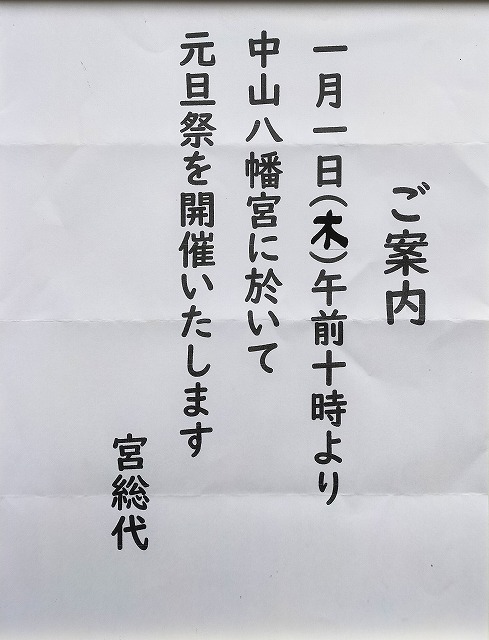 ご案内
一月一日(木)午前十時より
中山八幡宮に於いて
元旦祭を開催いたします
宮総代